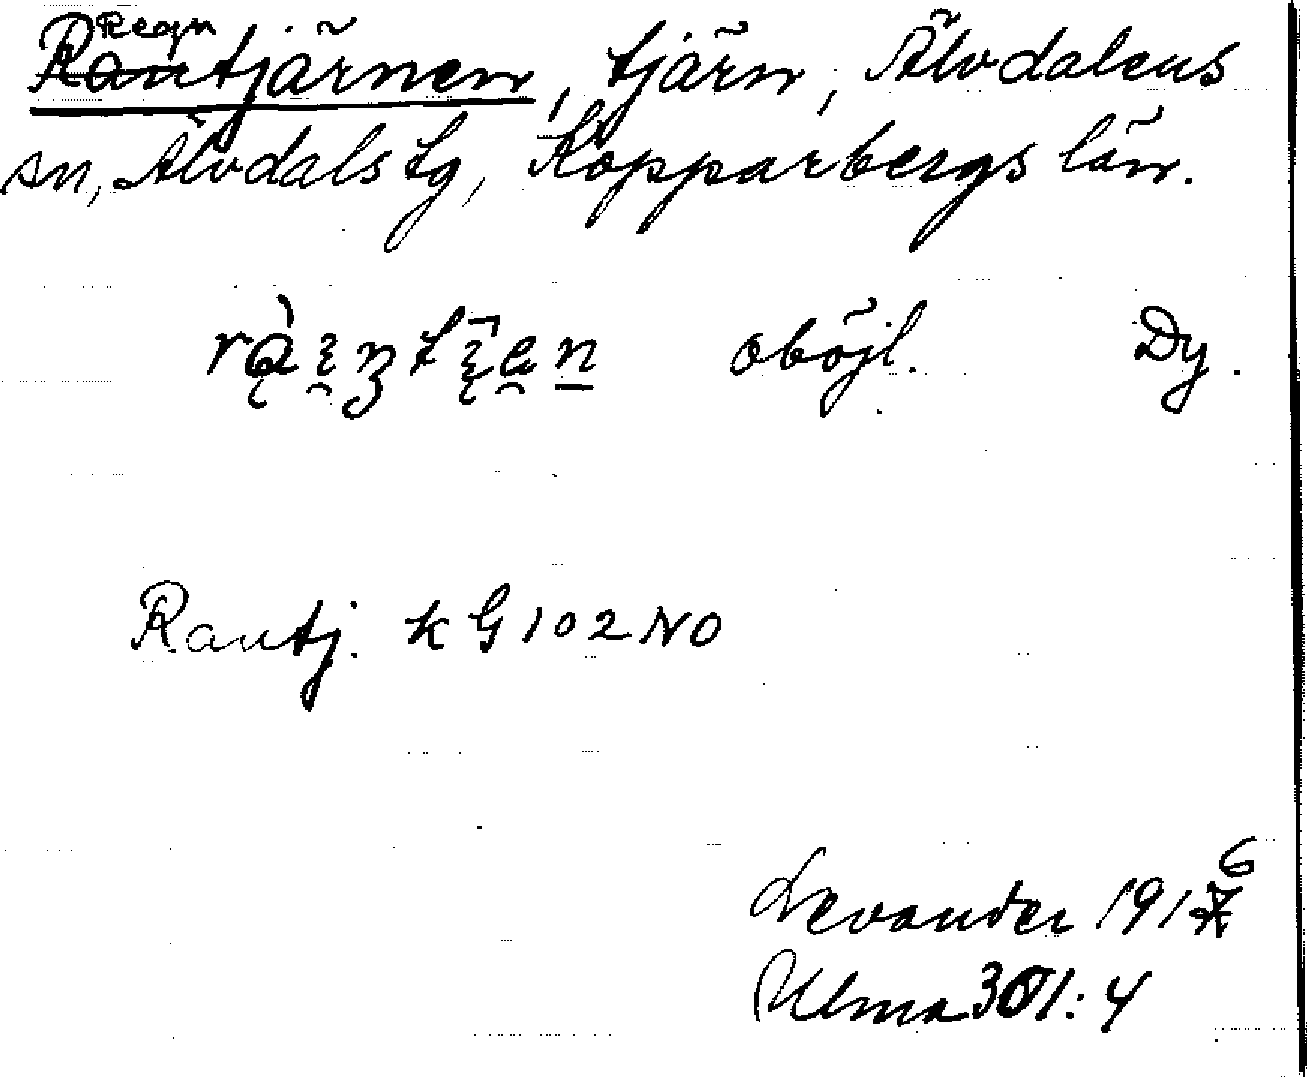 Regntjärnen, tjärn, Älvdalens
sn, Älvdals tg, Kopparbergs län.
oböjl. Dy.
Rautj. k G 102 NO
Levander 1916
Ulma 301:4